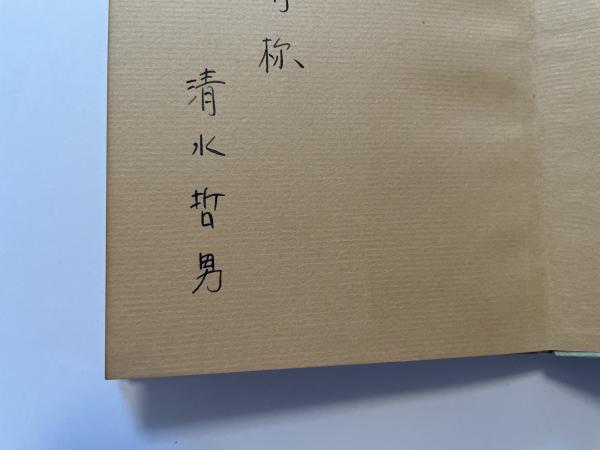 清水哲男